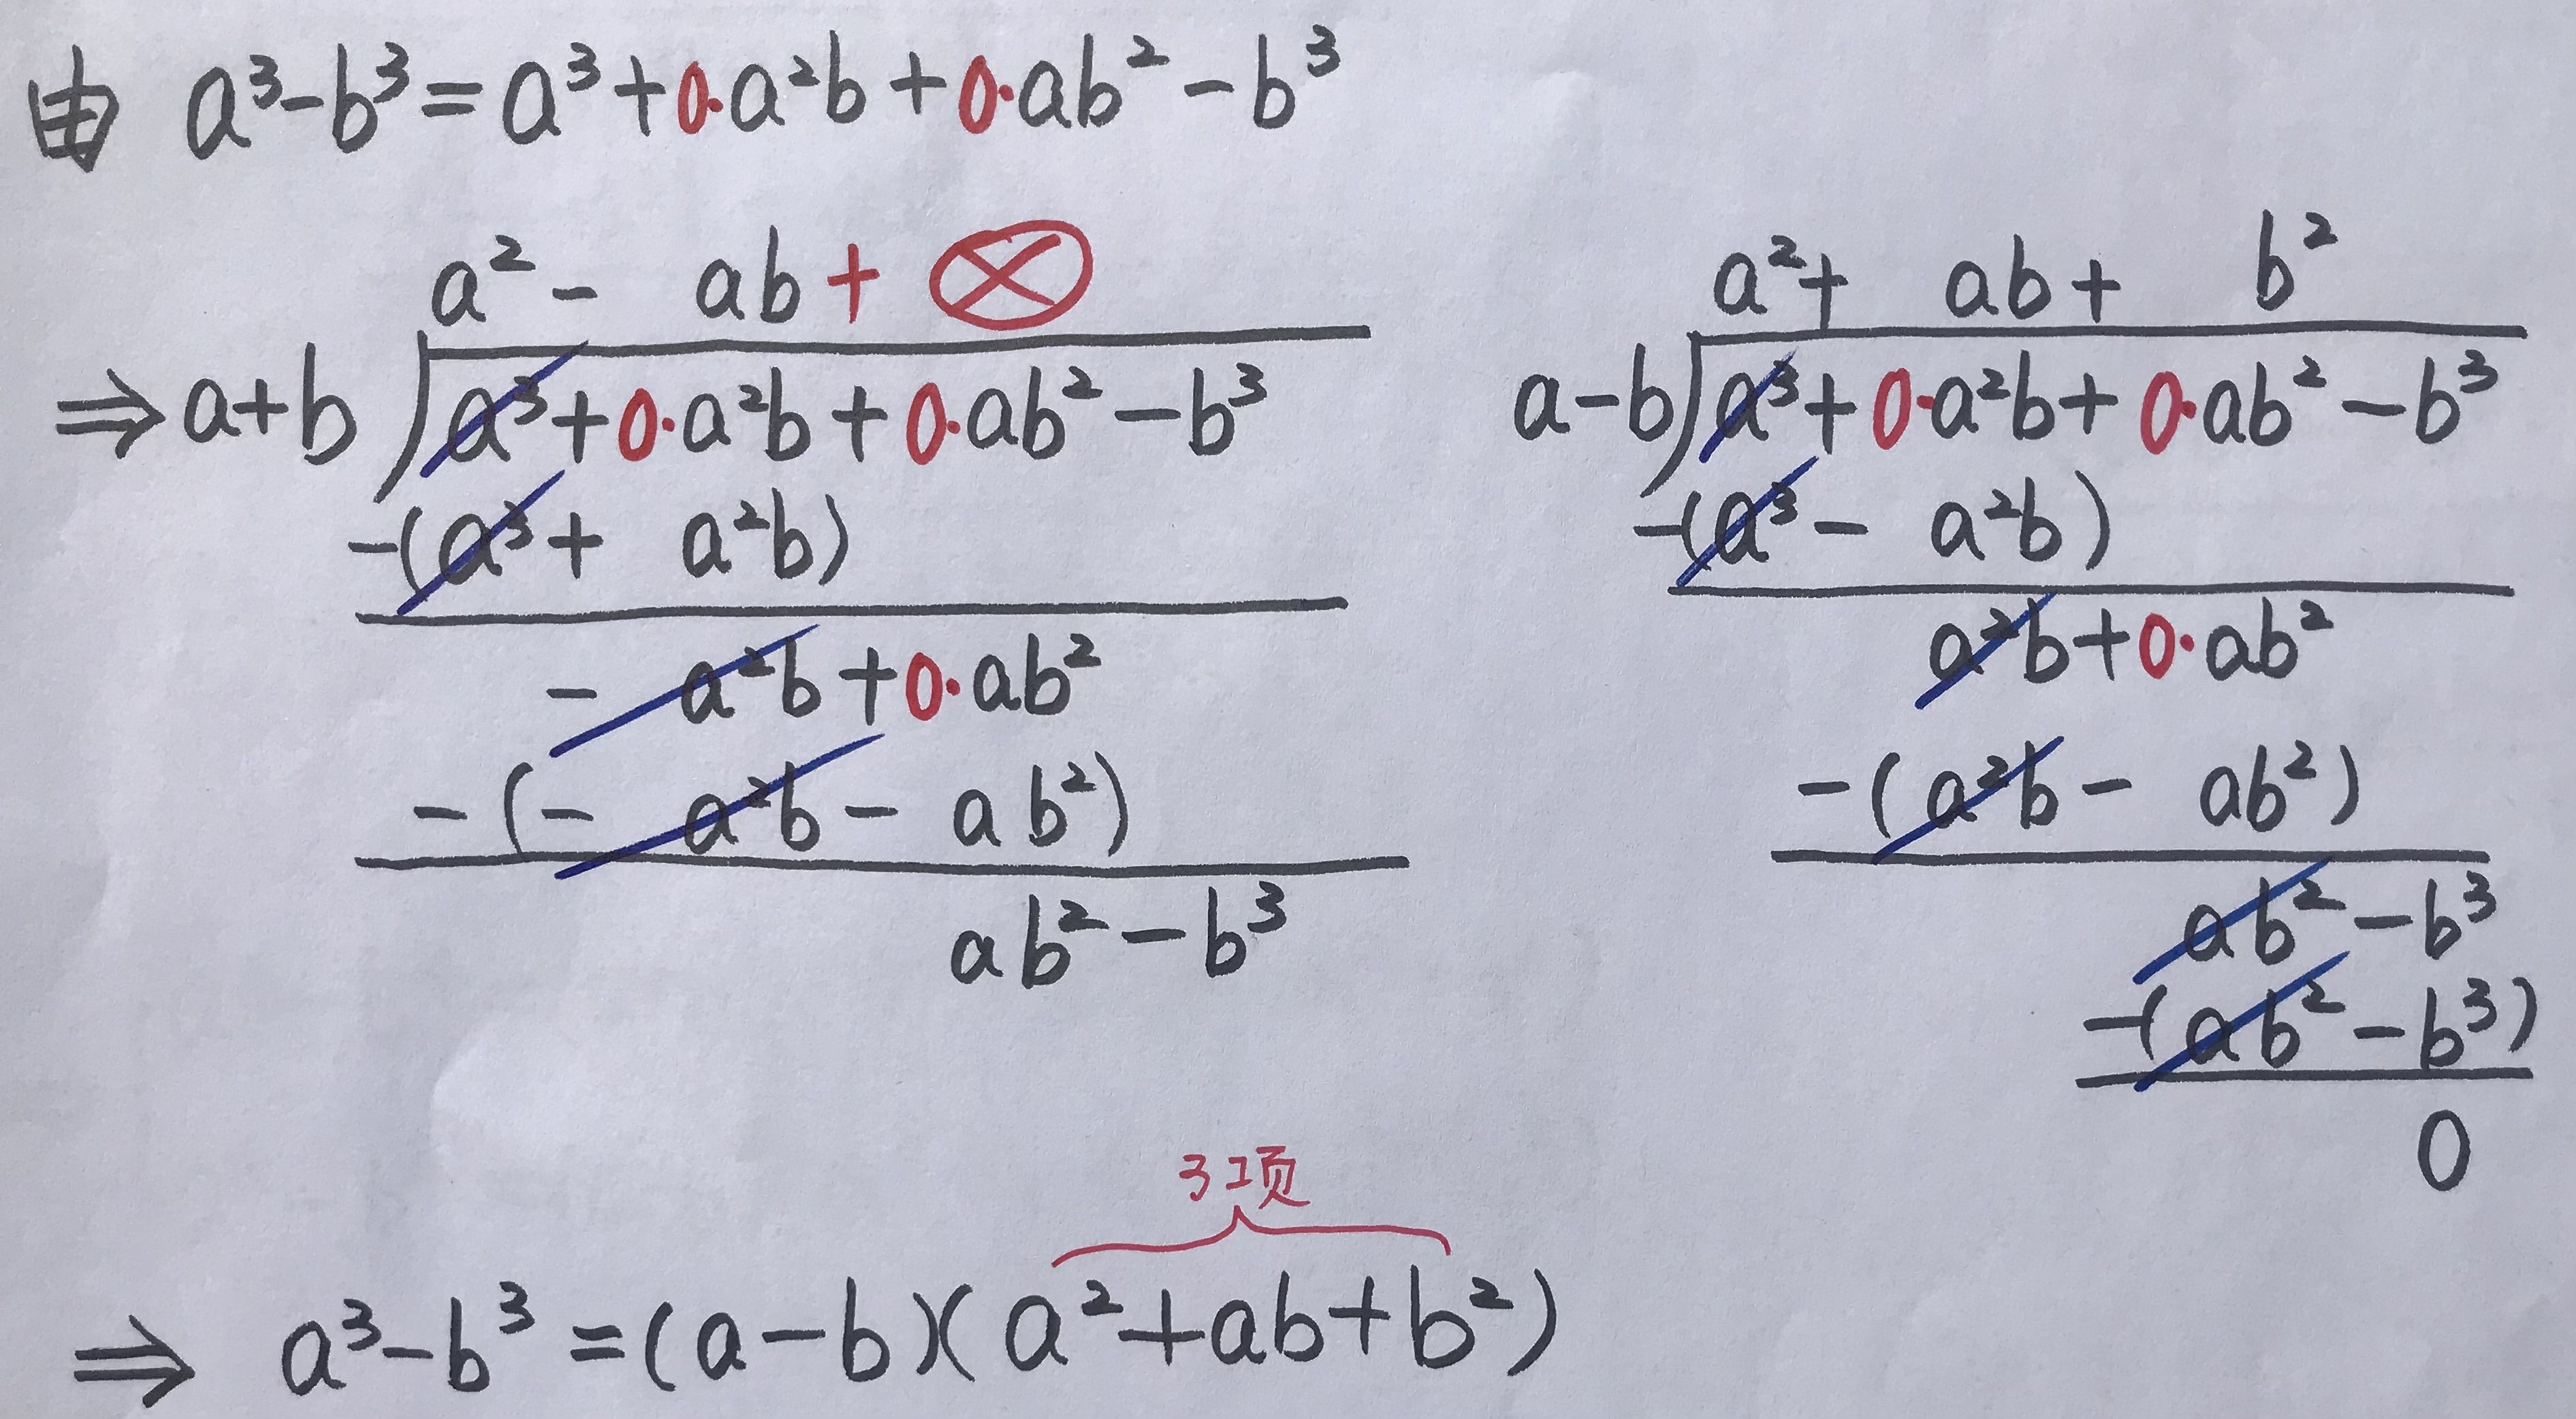 由 a³-b³=a³+0·a²b+0·ab²-b³
a²- ab+⊗
⇒a+b)a³+0·a²b+0·ab²-b³
-(a³+ a²b)
- a²b+0·ab²
-(- a²b- ab²)
ab²-b³
a²+ ab+ b²
a-b)a³+0·a²b+0·ab²-b³
-(a³- a²b)
a²b+0·ab²
-(a²b- ab²)
ab²-b³
-(ab²-b³)
0
3项
⇒ a³-b³=(a-b)(a²+ab+b²)